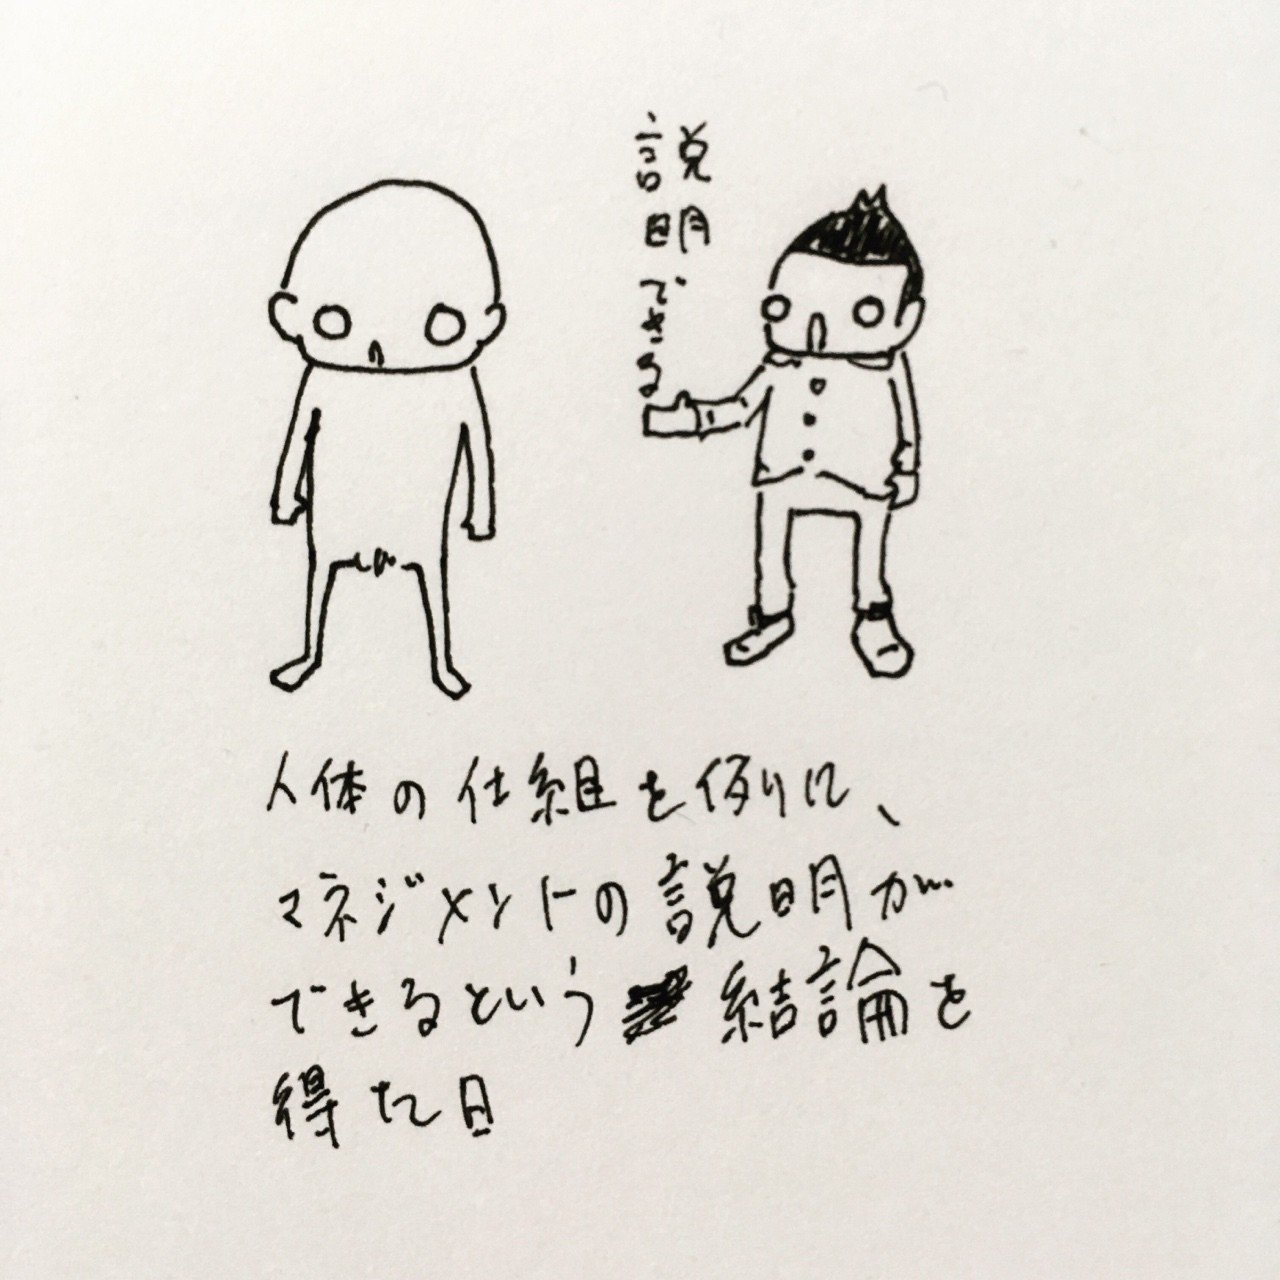 説明できる
人体の仕組を例りに、
マネジメントの説明が
できるという結論を
得た日